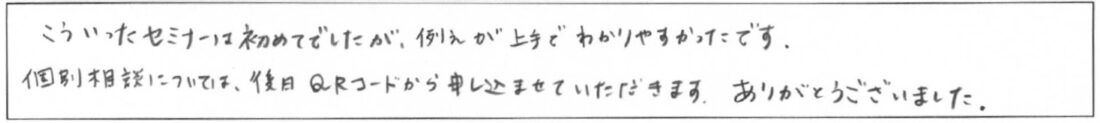 こういったセミナーは初めてでしたが、例えが上手でわかりやすかったです.
個別相談については、後日QRコードから申し込ませていただきます. ありがとうございました.